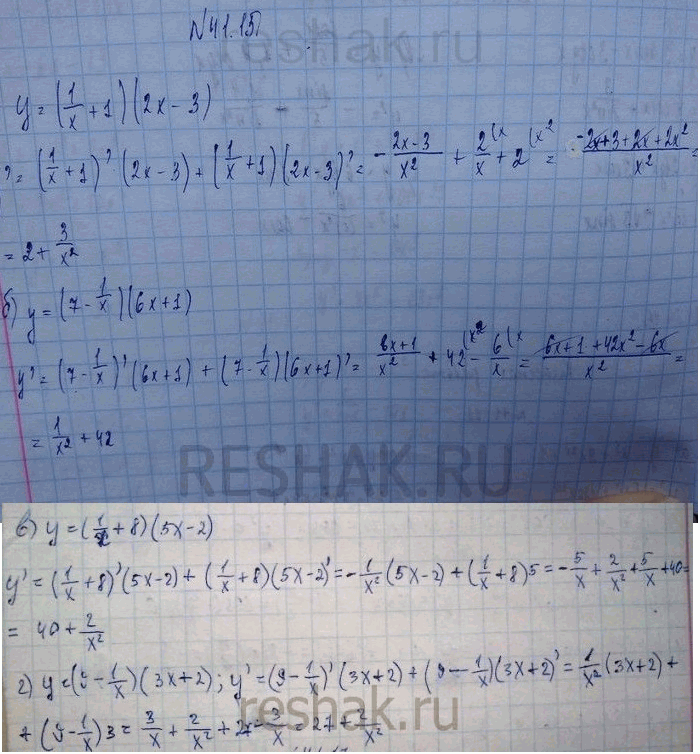 №41.15
reshak.ru
y = (1/x + 1)(2x - 3)
' = (1/x + 1)' (2x - 3) + (1/x + 1)(2x - 3)' = - (2x - 3)/x² + 2/x (x + 2 (x² = (-2x + 3 + 2x + 2x²)/x² =
= 2 + 3/x²
б) y = (7 - 1/x)(6x + 1)
y' = (7 - 1/x)' (6x + 1) + (7 - 1/x)(6x + 1)' = (6x + 1)/x² + 42 (x² - 6/x (x = (6x + 1 + 42x² - 6x)/x² =
= 1/x² + 42
RESHAK.RU
в) y = (1/x + 8)(5x - 2)
y' = (1/x + 8)'(5x - 2) + (1/x + 8)(5x - 2)' = - 1/x² (5x - 2) + (1/x + 8)5 = - 5/x + 2/x² + 5/x + 40 =
= 40 + 2/x²
г) y = (9 - 1/x)(3x + 2); y' = (9 - 1/x)'(3x + 2) + (9 - 1/x)(3x + 2)' = 1/x² (3x + 2) +
+ (9 - 1/x)3 = 3/x + 2/x² + 27 - 3/x = 27 + 2/x²
reshak.ru